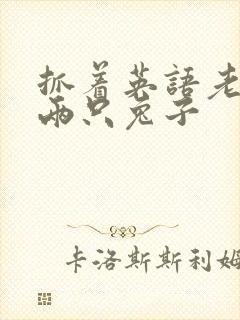 抓着英語老
兩只兔子
卡洛斯斯利姆